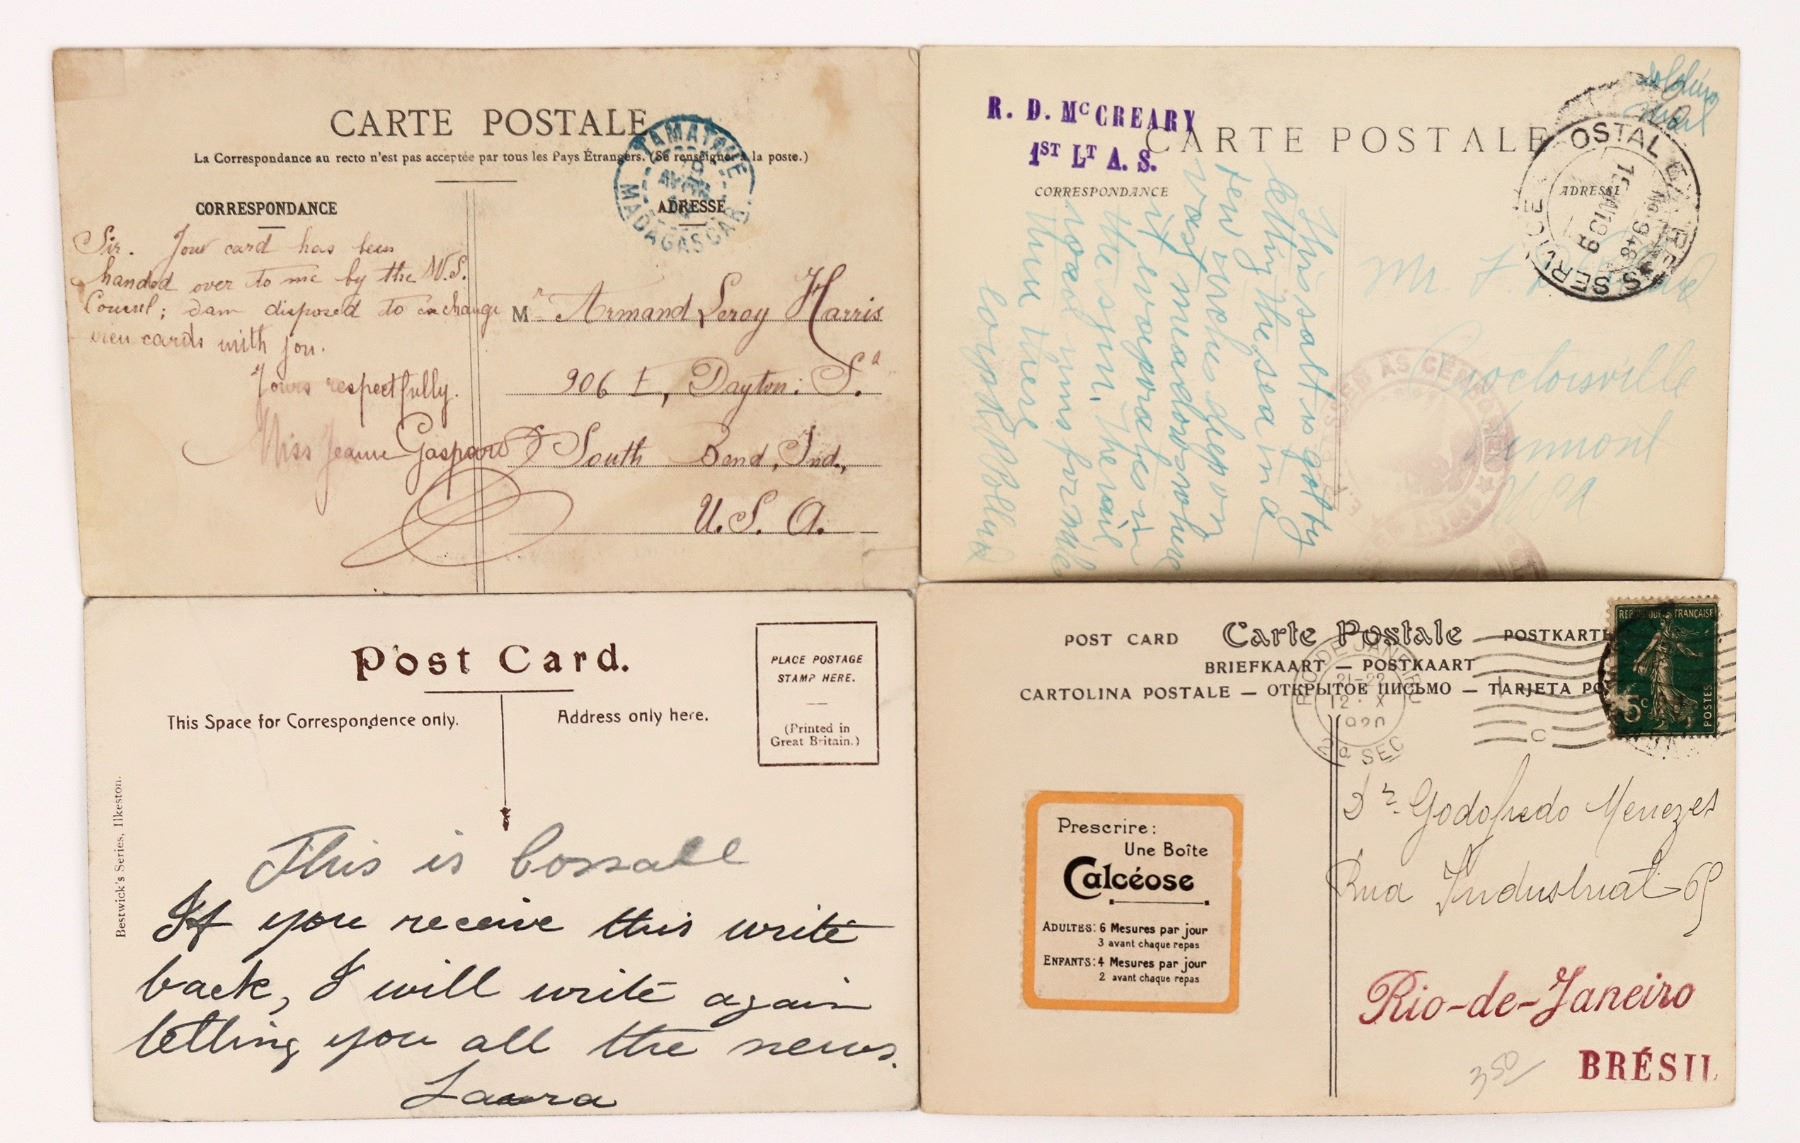 CARTE POSTALE
La Correspondance au recto n'est pas acceptée par tous les Pays Étrangers. (Se renseigner à la poste.)
CORRESPONDANCE
ADRESSE
TAMATAVE
MADAGASCAR
Sir. Your card has been
handed over to me by the U.S.
Consul; I am disposed to exchange
view cards with you.
Yours respectfully.
Miss Jeanne Gaspard
Mr Armand Leroy Harris
906 E, Dayton. S.
South Bend, Ind.,
U. S. A.
R. D. McCREARY
1ST LT A. S.
CARTE POSTALE
CORRESPONDANCE
ADRESSE
Soldiers
mail
POSTAL EXPRESS SERVICE
No. 948
This salt is got by
letting the sea in a
few inches deep on
vast meadows where
it evaporates in
the sun. The rail
road runs for mile
thru these
Mr. F.
Vermont
USA
Post Card.
This Space for Correspondence only.
Address only here.
PLACE POSTAGE
STAMP HERE.
(Printed in
Great Britain.)
Bestwick's Series, Ilkeston.
This is Cossall
If you receive this write
back, I will write again
letting you all the news.
Laura
POST CARD Carte Postale POSTKARTE
BRIEFKAART — POSTKAART
CARTOLINA POSTALE — ОТКРЫТОЕ ПИСЬМО — TARJETA PO
RIO DE JANEIRO
21-22
12 · X
1920
2a SEC
C
REPUBLIQUE FRANÇAISE
5c
POSTES
Prescrire:
Une Boîte
Calcéose
ADULTES: 6 Mesures par jour
3 avant chaque repas
ENFANTS: 4 Mesures par jour
2 avant chaque repas
Dr. Godofredo Menezes
Rua Industrial 69
Rio-de-Janeiro
BRÉSIL
350